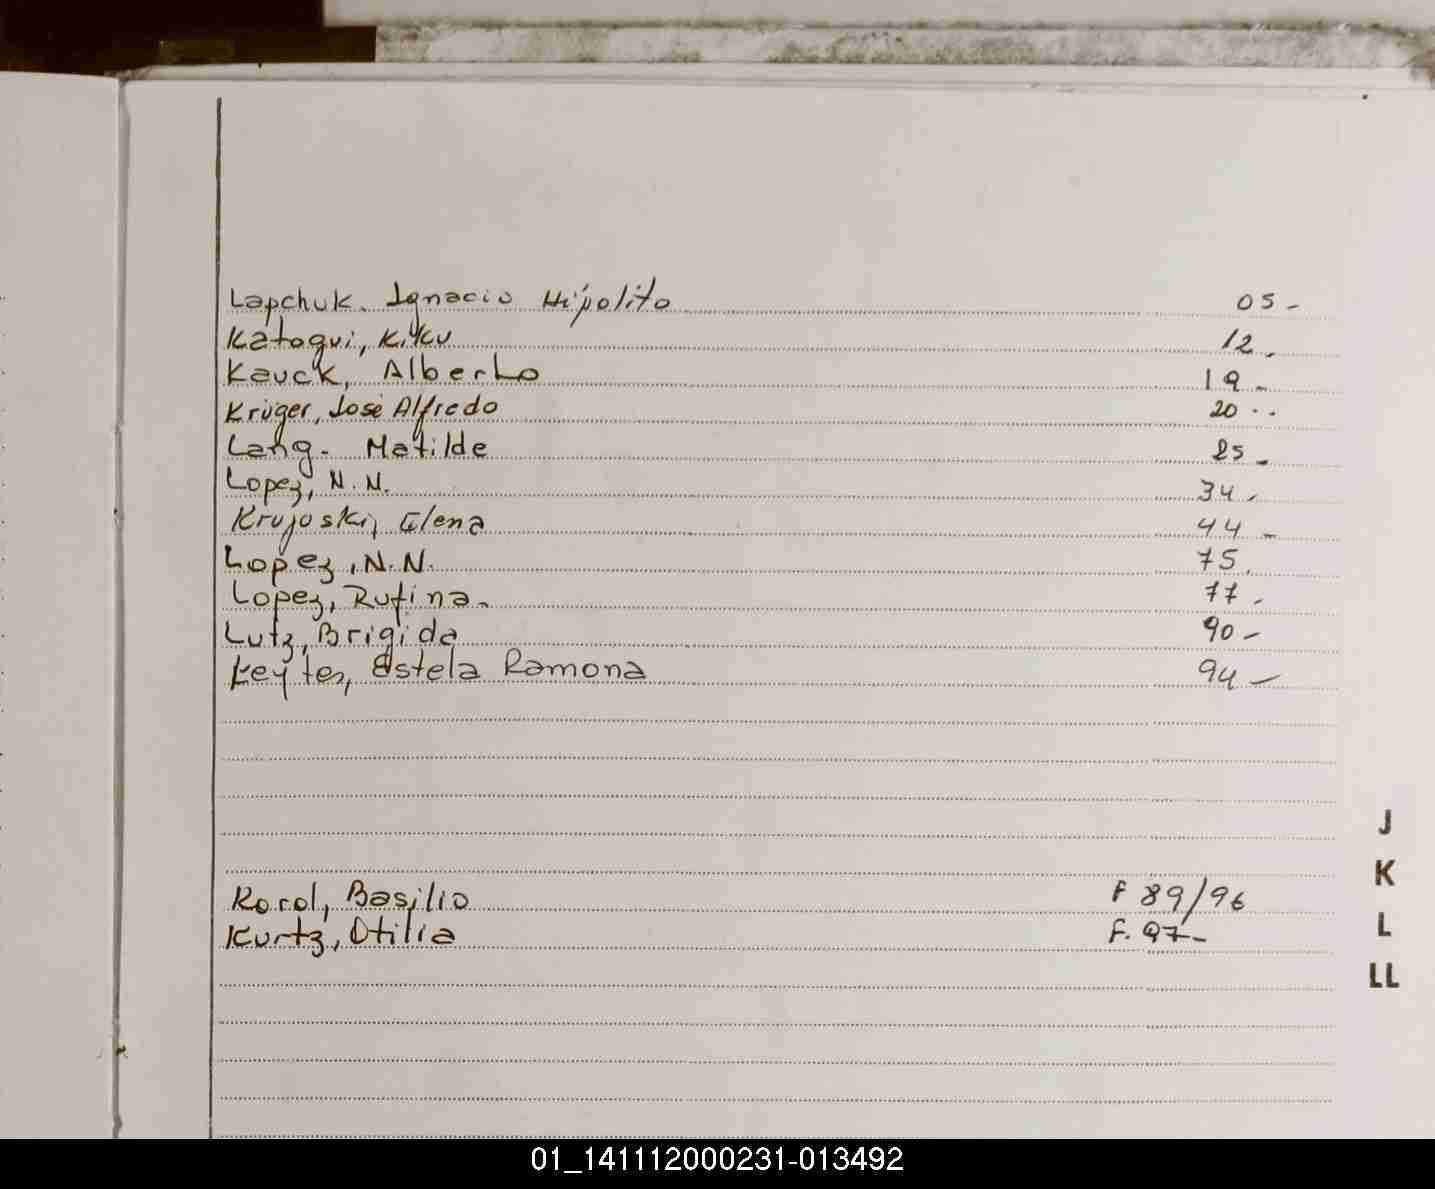 Lapchuk. Ignacio Hipolito 05-
Katogui, Kiku 12.
Kauck, Alberto 19-
Krüger, José Alfredo 20..
Lang. Matilde 25-
Lopez, N.N. 34.
Krujoski, Elena 44-
Lopez, N.N. 75.
Lopez, Rufina. 77.
Lutz, Brigida 90-
Keytes, Estela Ramona 94-
J
K
Korol, Basilio F 89/96
L
Kurtz, Otilia F. 97-
LL
01_141112000231-013492